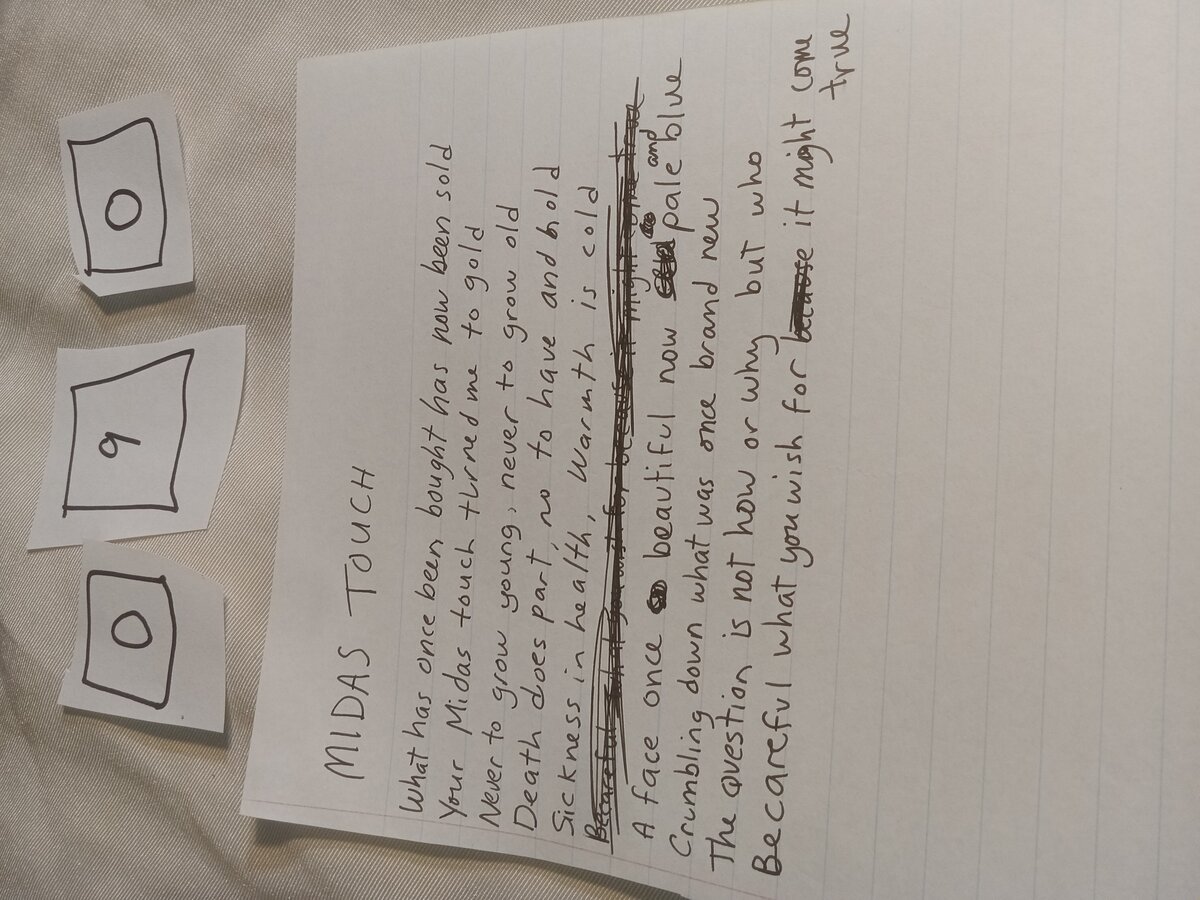 0 9 0
MIDAS TOUCH
What has once been bought has now been sold
Your Midas touch turned me to gold
Never to grow young, never to grow old
Death does part, no to have and hold
Sickness in health, warmth is cold
Becareful what you wish for because it might come true
A face once beautiful now and pale blue
Crumbling down what was once brand new
The question is not how or why but who
Becareful what you wish for because it might come
true